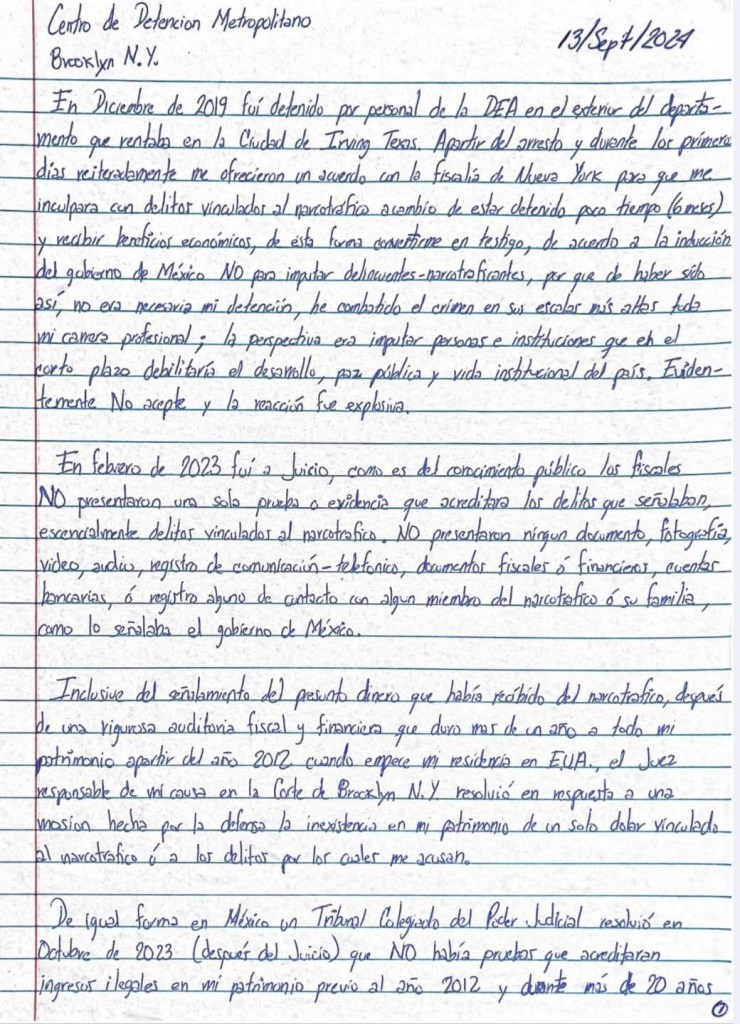 Centro de Detencion Metropolitano
Brooklyn N.Y.
13/Sept/2024
En Diciembre de 2019 fuí detenido por personal de la DEA en el exterior del departa-
mento que rentaba en la Ciudad de Irving Texas. Apartir del arresto y durante los primeros
días reiteradamente me ofrecieron un acuerdo con la fiscalía de Nueva York para que me
inculpara con delitos vinculados al narcotráfico acambio de estar detenido poco tiempo (6 meses)
y recibir beneficios económicos, de ésta forma convertirme en testigo, de acuerdo a la inducción
del gobierno de México NO para imputar delincuentes-narcotraficantes, por que de haber sido
así, no era necesaria mi detención, he combatido el crimen en sus escalas más altas toda
mi carrera profesional; la perspectiva era imputar personas e instituciones que en el
corto plazo debilitaría el desarrollo, paz pública y vida institucional del país. Eviden-
temente No acepte y la reacción fue explosiva.
En febrero de 2023 fuí a Juicio, como es del conocimiento público los fiscales
NO presentaron una sola prueba o evidencia que acreditara los delitos que señalaban,
escencialmente delitos vinculados al narcotrafico. NO presentaron ningun documento, fotografía,
video, audio, registro de comunicación-telefonico, documentos fiscales ó financieros, cuentas
bancarias, ó registro alguno de contacto con algun miembro del narcotrafico ó su familia,
como lo señalaba el gobierno de México.
Inclusive del señalamiento del presunto dinero que había recibido del narcotrafico, después
de una rigurosa auditoria fiscal y financiera que duro mas de un año a todo mi
patrimonio apartir del año 2012 cuando empece mi residencia en E.U.A., el Juez
responsable de mi causa en la Corte de Brooklyn N.Y. resolvió en respuesta a una
mosion hecha por la defensa la inexistencia en mi patrimonio de un solo dolar vinculado
al narcotrafico ó a los delitos por los cuales me acusan.
De igual forma en México un Tribunal Colegiado del Poder Judicial resolvió en
Octubre de 2023 (después del Juicio) que NO había pruebas que acreditaran
ingresos ilegales en mi patrimonio previo al año 2012 y durante más de 20 años
1